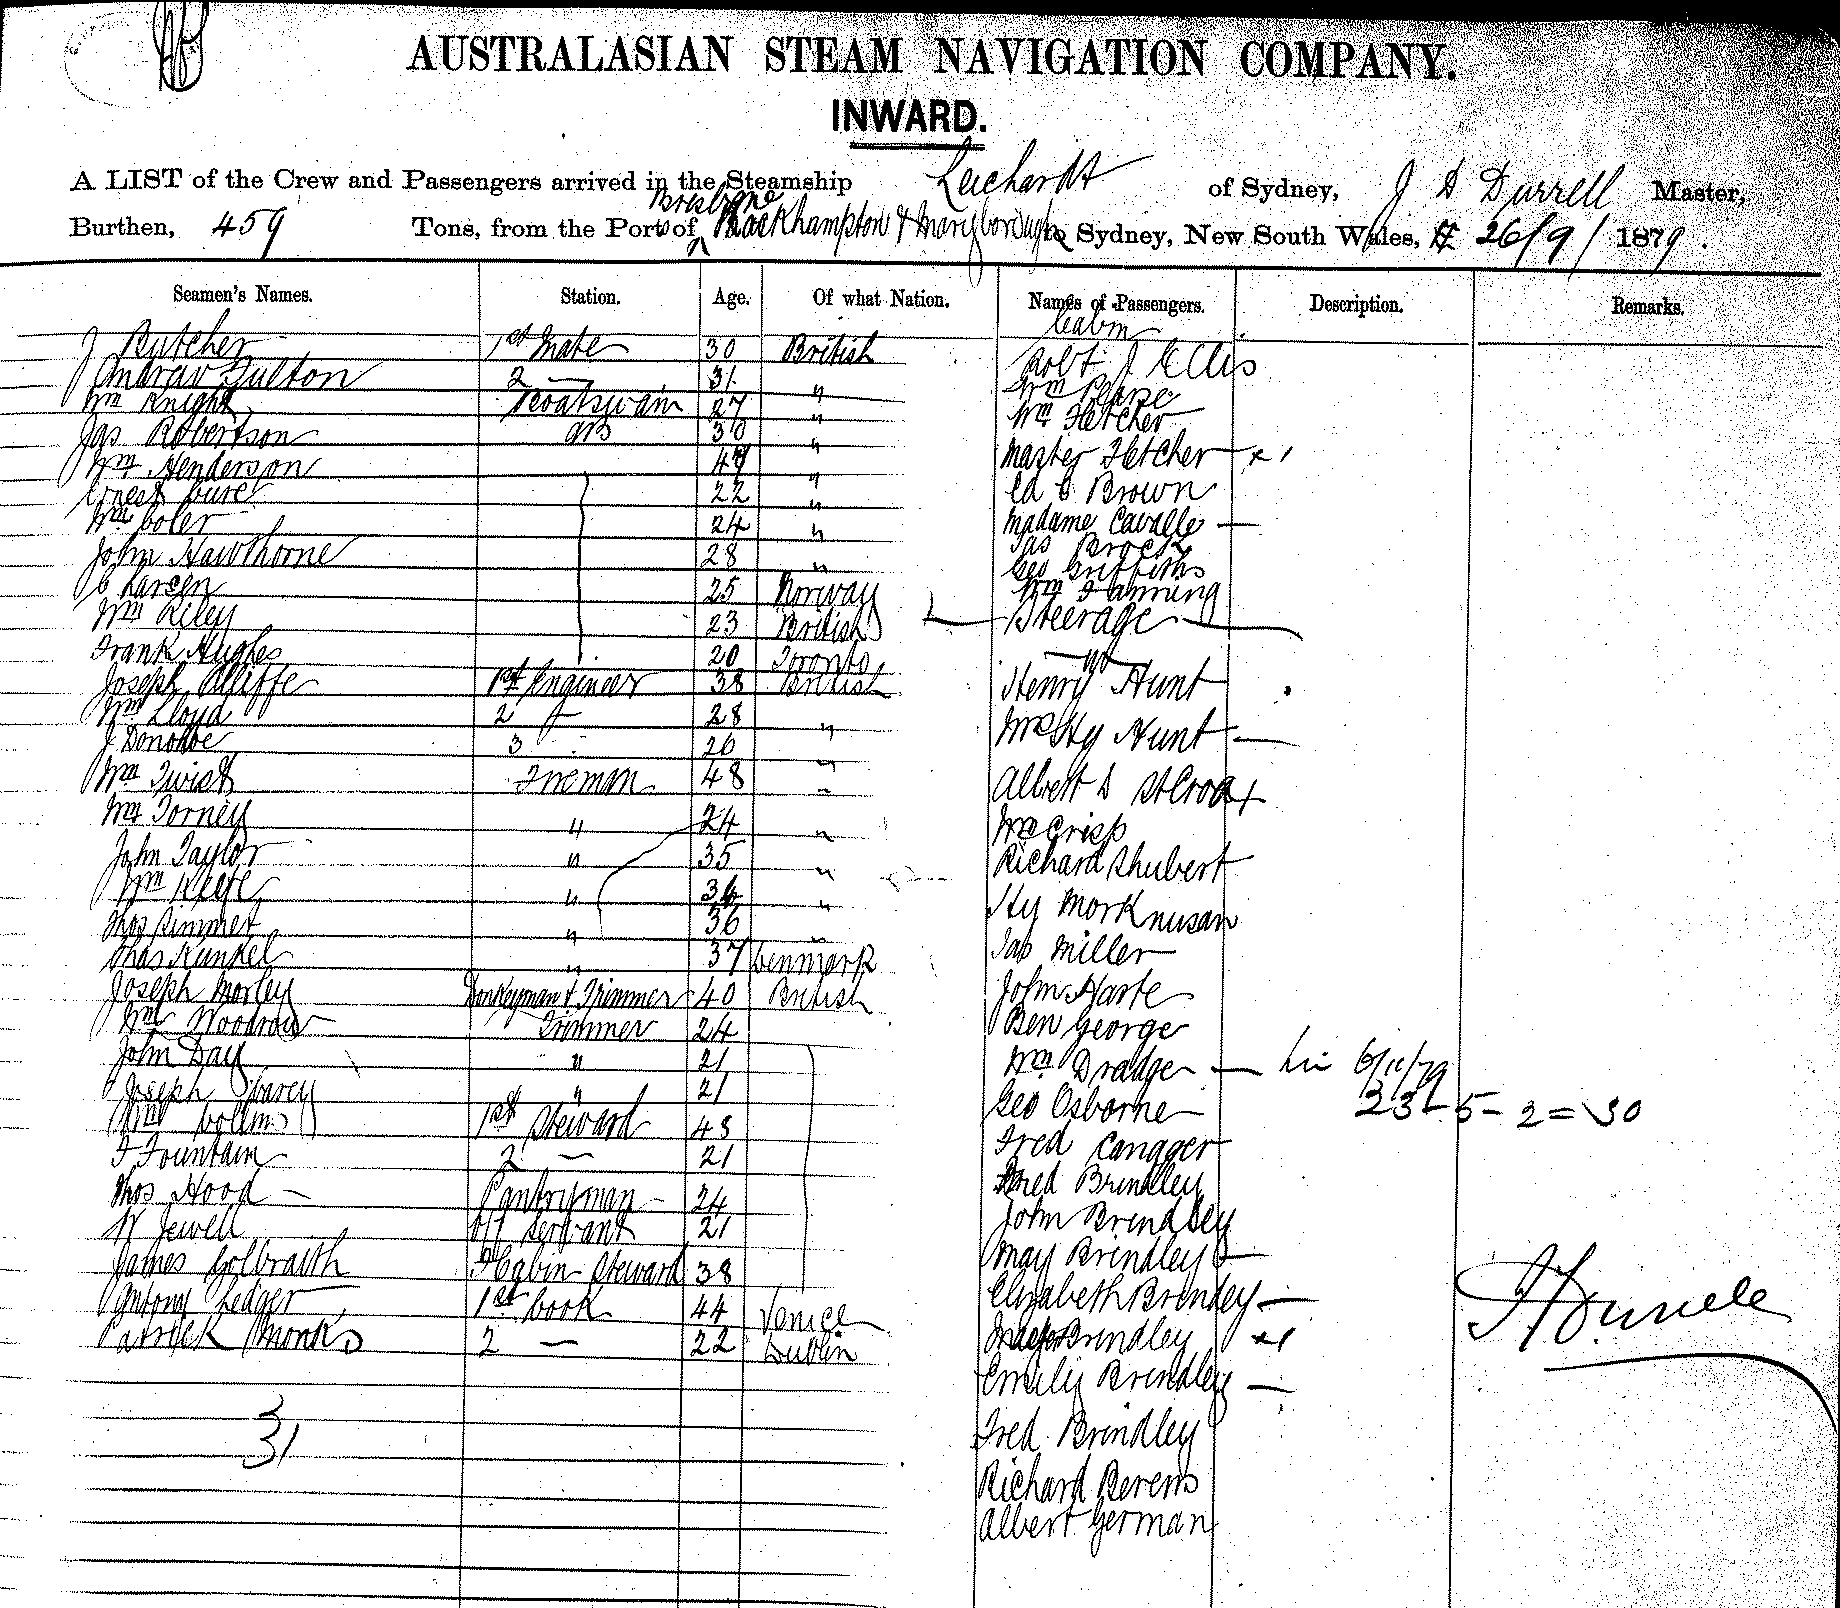 AUSTRALASIAN STEAM NAVIGATION COMPANY.
INWARD.
A LIST of the Crew and Passengers arrived in the Steamship Leichardt of Sydney, J A Durrell Master,
Brisbane
Burthen, 459 Tons, from the Ports of Rockhampton & Maryborough to Sydney, New South Wales, 26/9/1879.
Seamen's Names. Station. Age. Of what Nation. Names of Passengers. Description. Remarks.
Cabin
J Butcher 1st Mate 30 British Robt J Ellis
Andrew Fulton 2 — 31 " Wm Pearse
Wm Knight Boatswain 27 " Wm Fletcher
Jas Robertson AB 30 " Master Fletcher x 1
Wm Henderson " Ed C Brown
Ernest 22 " Madame Cavalle —
Wm Coler 24 " Jas Brock
John Hawthorne 28 " Geo Griffiths
C Larsen 25 Norway Wm Fanning
Wm Riley 23 British Steerage
Frank Hughes 20 Toronto
Joseph Olliffe 1st Engineer 38 British Henry Hunt
Wm Lloyd 2 28 " Mrs Hy Hunt —
J Donohoe 3 26 "
Wm Twist Fireman 48 " Albert D St Croix
Wm Torney " 24 " Mr Crisp
John Taylor " 35 " Richard Shubert
Wm Keefe " 34 " Hy
Thos Rimmer " 36 " Jas Miller
Chas Kunkel " 37 Denmark John Harte
Joseph Morley Donkeyman & Trimmer 40 British Ben George
Wm Woodrow Trimmer 24 Wm Dradge — 6/11/79
John Day " 21 Geo Osborne 23 - 5 - 2 = 30
Joseph " 21 Fred Cangger
Wm Collins 1st Steward 43 Fred Brindley
F Fountain 2 — 21 John Brindley
Thos Hood — Pantryman 24 May Brindley —
W Jewell Servant 21 Elizabeth Brindley —
James Golbraith F Cabin Steward 38 Brindley x 1
Antony Ledger 1st Cook 44 Venice Emily Brindley —
Patrick Monks 2 — 22 Dublin Fred Brindley
31 Richard Berens
Albert German
J A Durrell